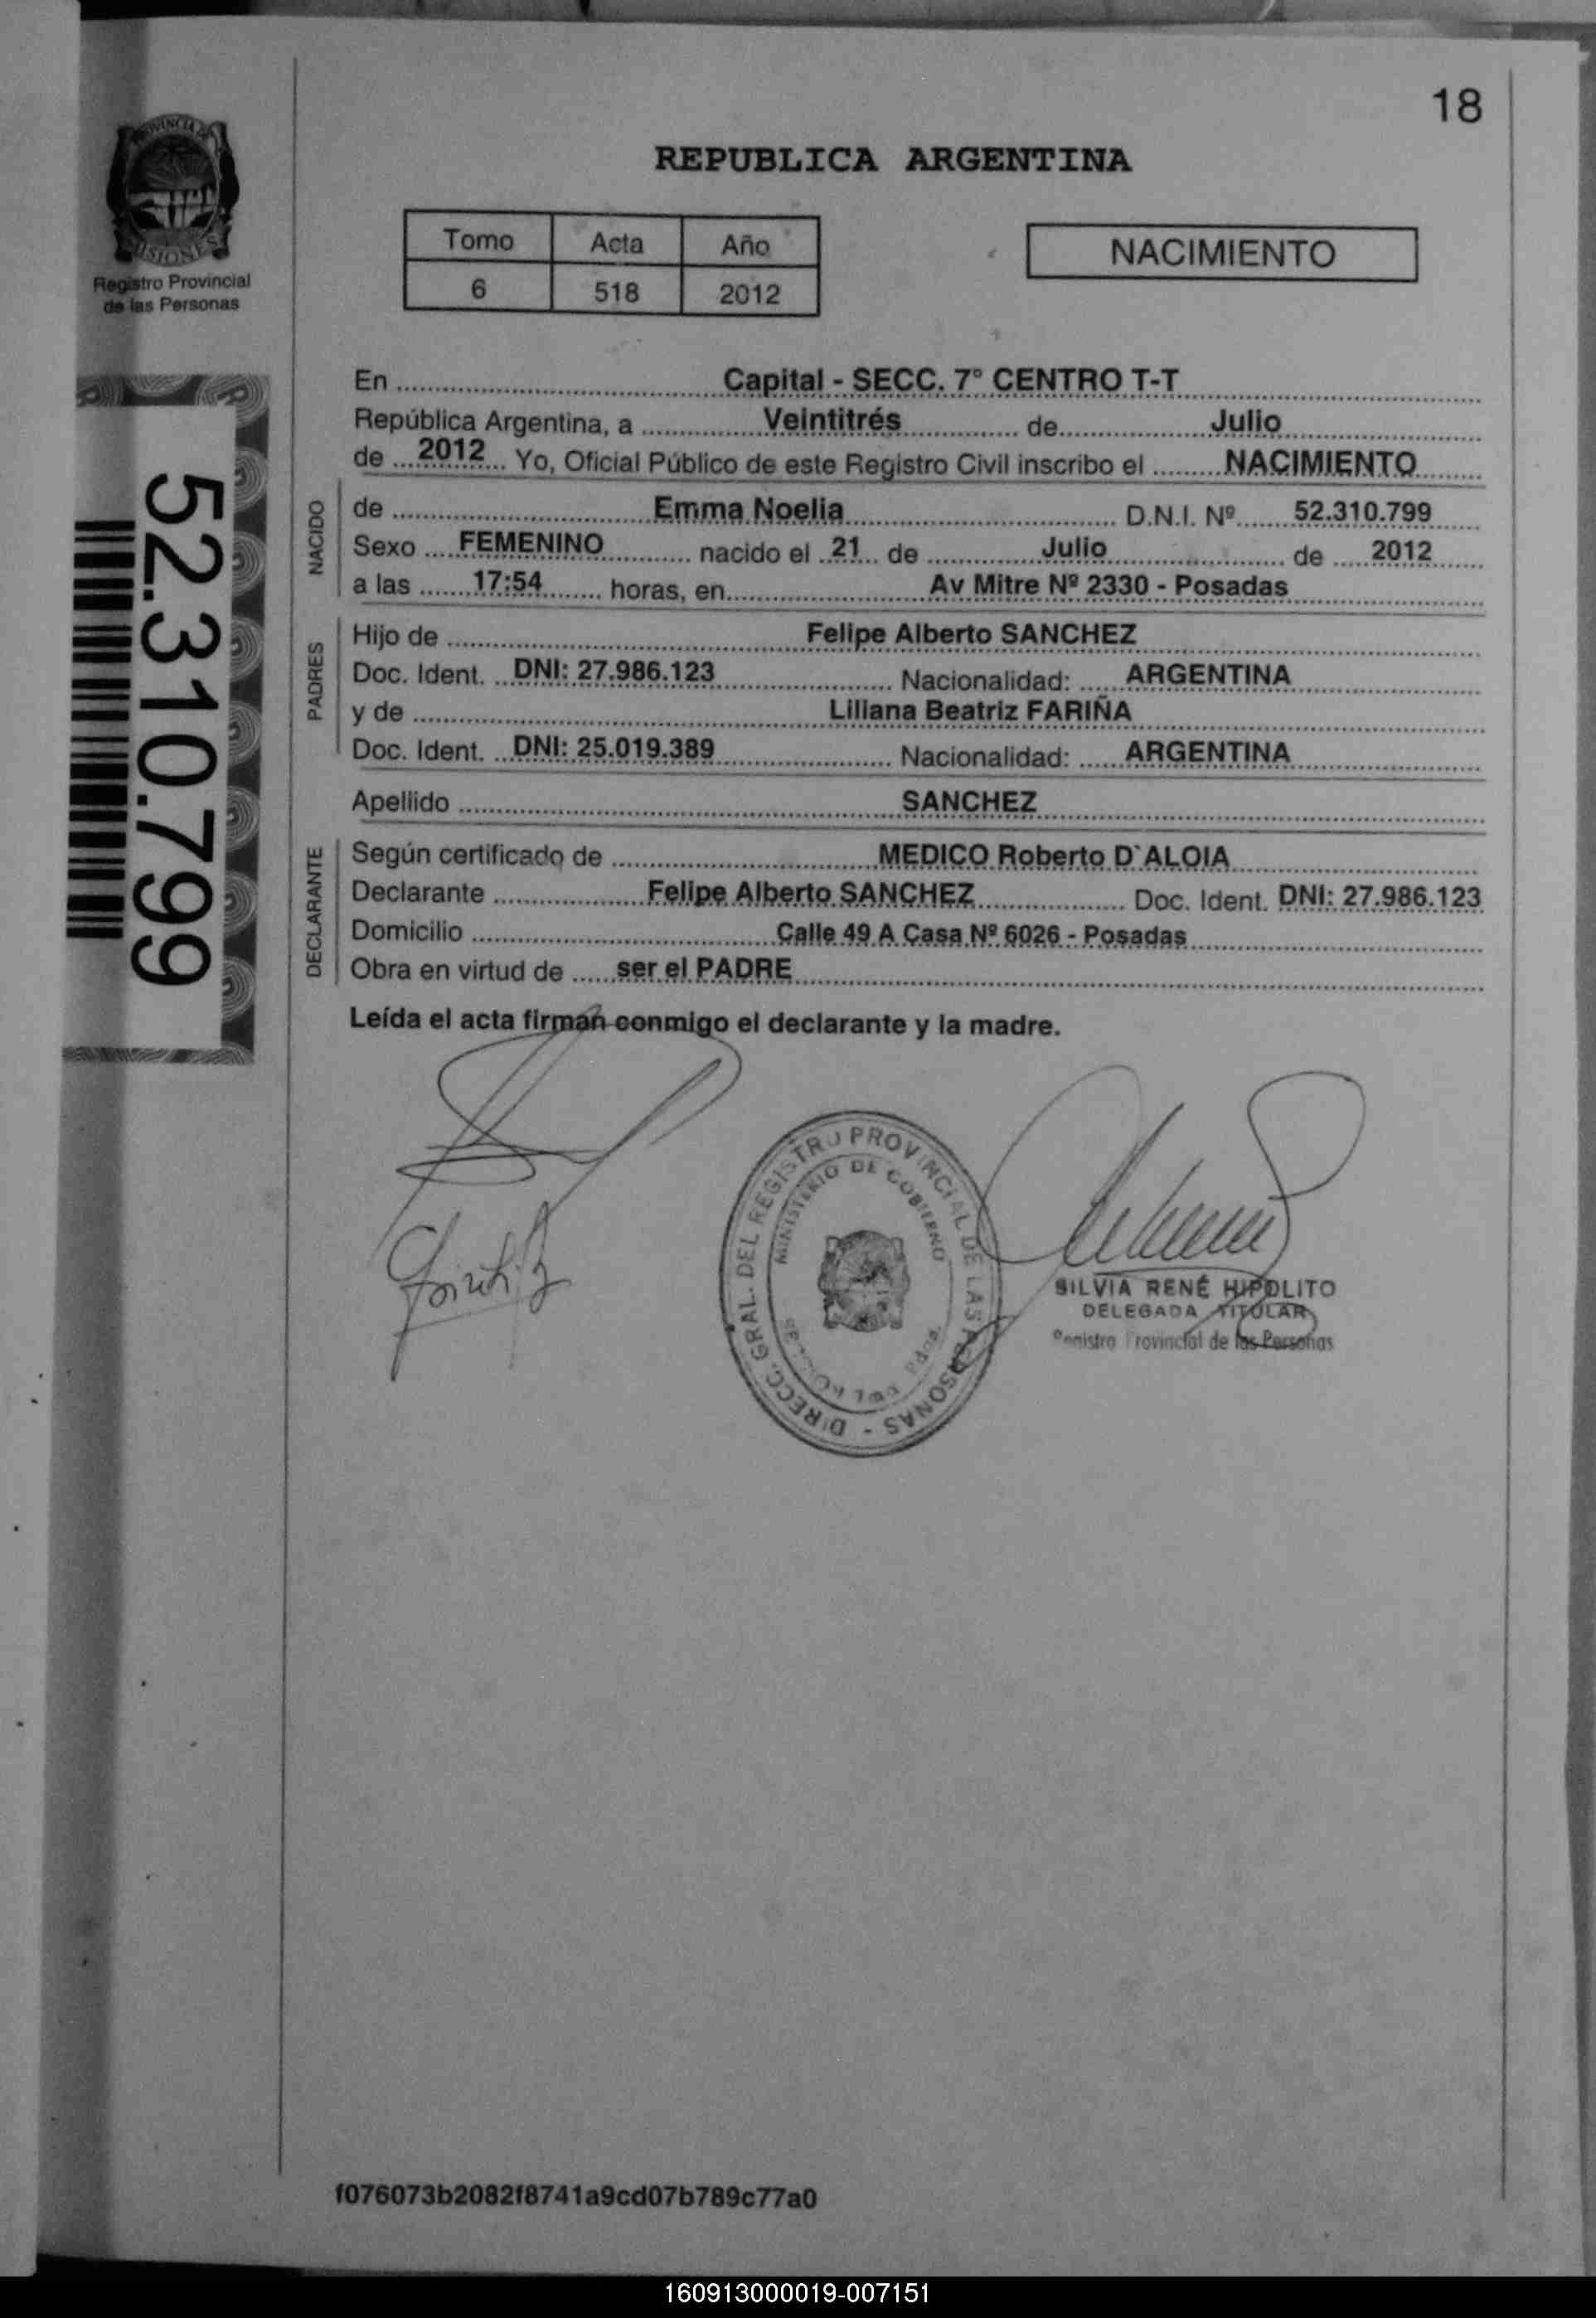 18
PROVINCIA DE
MISIONES
Registro Provincial
de las Personas
REPUBLICA ARGENTINA
Tomo Acta Año
6 518 2012
NACIMIENTO
52.310.799
En Capital - SECC. 7° CENTRO T-T
República Argentina, a Veintitrés de Julio
de 2012 Yo, Oficial Público de este Registro Civil inscribo el NACIMIENTO
NACIDO
de Emma Noelia D.N.I. Nº 52.310.799
Sexo FEMENINO nacido el 21 de Julio de 2012
a las 17:54 horas, en Av Mitre Nº 2330 - Posadas
PADRES
Hijo de Felipe Alberto SANCHEZ
Doc. Ident. DNI: 27.986.123 Nacionalidad: ARGENTINA
y de Liliana Beatriz FARIÑA
Doc. Ident. DNI: 25.019.389 Nacionalidad: ARGENTINA
Apellido SANCHEZ
DECLARANTE
Según certificado de MEDICO Roberto D`ALOIA
Declarante Felipe Alberto SANCHEZ Doc. Ident. DNI: 27.986.123
Domicilio Calle 49 A Casa Nº 6026 - Posadas
Obra en virtud de ser el PADRE
Leída el acta firman conmigo el declarante y la madre.
DIRECC. GRAL. DEL REGISTRO PROVINCIAL DE LAS PERSONAS -
MINISTERIO DE GOBIERNO
SILVIA RENÉ HIPOLITO
DELEGADA TITULAR
Registro Provincial de las Personas
f076073b2082f8741a9cd07b789c77a0
160913000019-007151